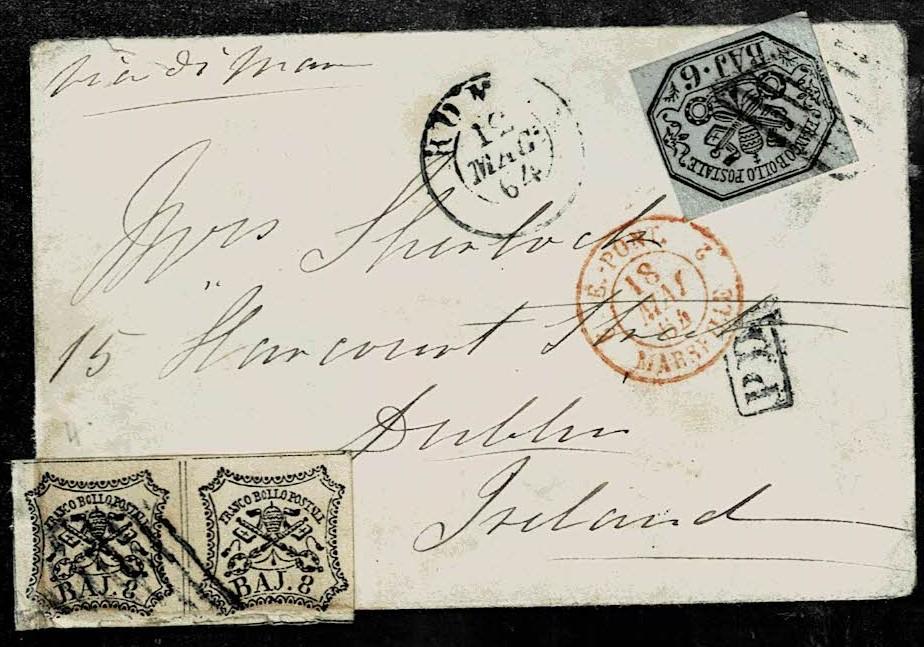 Via di Mar
ROM
12
MAG
64
BAJ·6
FRANCO BOLLO POSTALE
Mrs Sherlock
E.-PONT. 2
18
MAI
64
MARSEILLE
15 Harcourt Street
P.D.
Dublin
Ireland
FRANCO BOLLO POSTALE
BAJ. 8
FRANCO BOLLO POSTALE
BAJ. 8